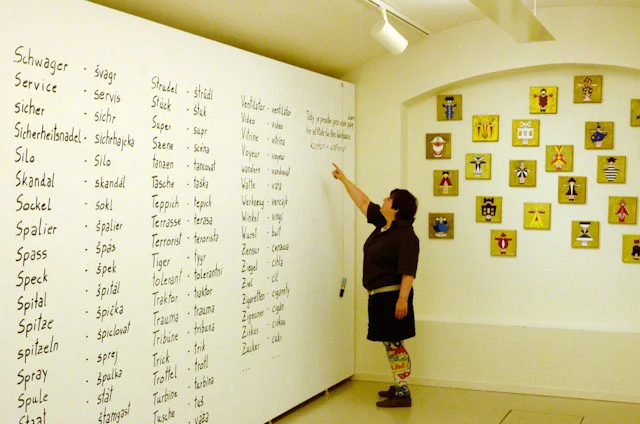 Schwager - švagr
Service - servis
sicher - sichr
Sicherheitsnadel - sichrhajcka
Silo - silo
Skandal - skandál
Sockel - sokl
Spalier - špalier
Spass - špás
Speck - špek
Spital - špitál
Spitze - špička
spitzeln - špiclovat
Spray - sprej
Spule - špulka
Staat - stát
- štamgast
Strudel - štrúdl
Stück - štuk
Super - supr
Szene - scéna
tanzen - tancovat
Tasche - taška
Teppich - tepich
Terrasse - terasa
Terrorist - terorista
Tiger - tygr
tolerant - tolerantní
Traktor - traktor
Trauma - trauma
Tribüne - tribuna
Trick - trik
Trottel - trotl
Turbine - turbina
Tusche - tuš
- váza
Ventilator - ventilátor
Video - video
Vitrine - vitrína
Voyeur - voyeur
wandern - vandrovat
Watte - vata
Werkzeug - verčajk
Winkel - vingl
Wurst - buřt
Zensur - cenzura
Ziegel - cihla
Ziel - cíl
Zigaretten - cigarety
Zigeuner - cigán
Zirkus - cirkus
Zucker - cukr
... ...
Tady je prostor pro vaše
Hier ist Platz für Ihre